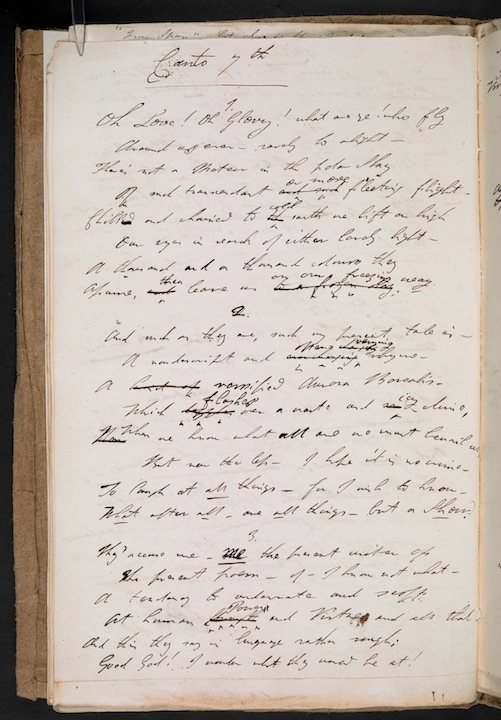 Canto 7th
1.
Oh Love! Oh Glory! what are ye! who fly
Around us ever - rarely to alight -
There's not a Meteor in the polar Sky
Of such transcendant or more fleeting flight -
Chill and chained to cold earth we lift on high
Our eyes in search of either lovely light -
A thousand and a thousand colours they
Assume, then leave us on our freezing way.
2.
And such as they are, such my present tale is -
A nondescript and varying rhyme -
A versified Aurora Borealis -
Which flashes over a waste and icy clime,
When we know what all are we must bewail us
But ne'er the less - I hope it is no crime -
To laugh at all things - for I wish to know -
What after all - are all things - but a Show?
3.
They accuse me - me the present writer of
The present poem - of - I know not what -
A tendency to underrate and scoff
At human Power and Virtue and all that -
And this they say in language rather rough;
Good God! I wonder what they would be at!